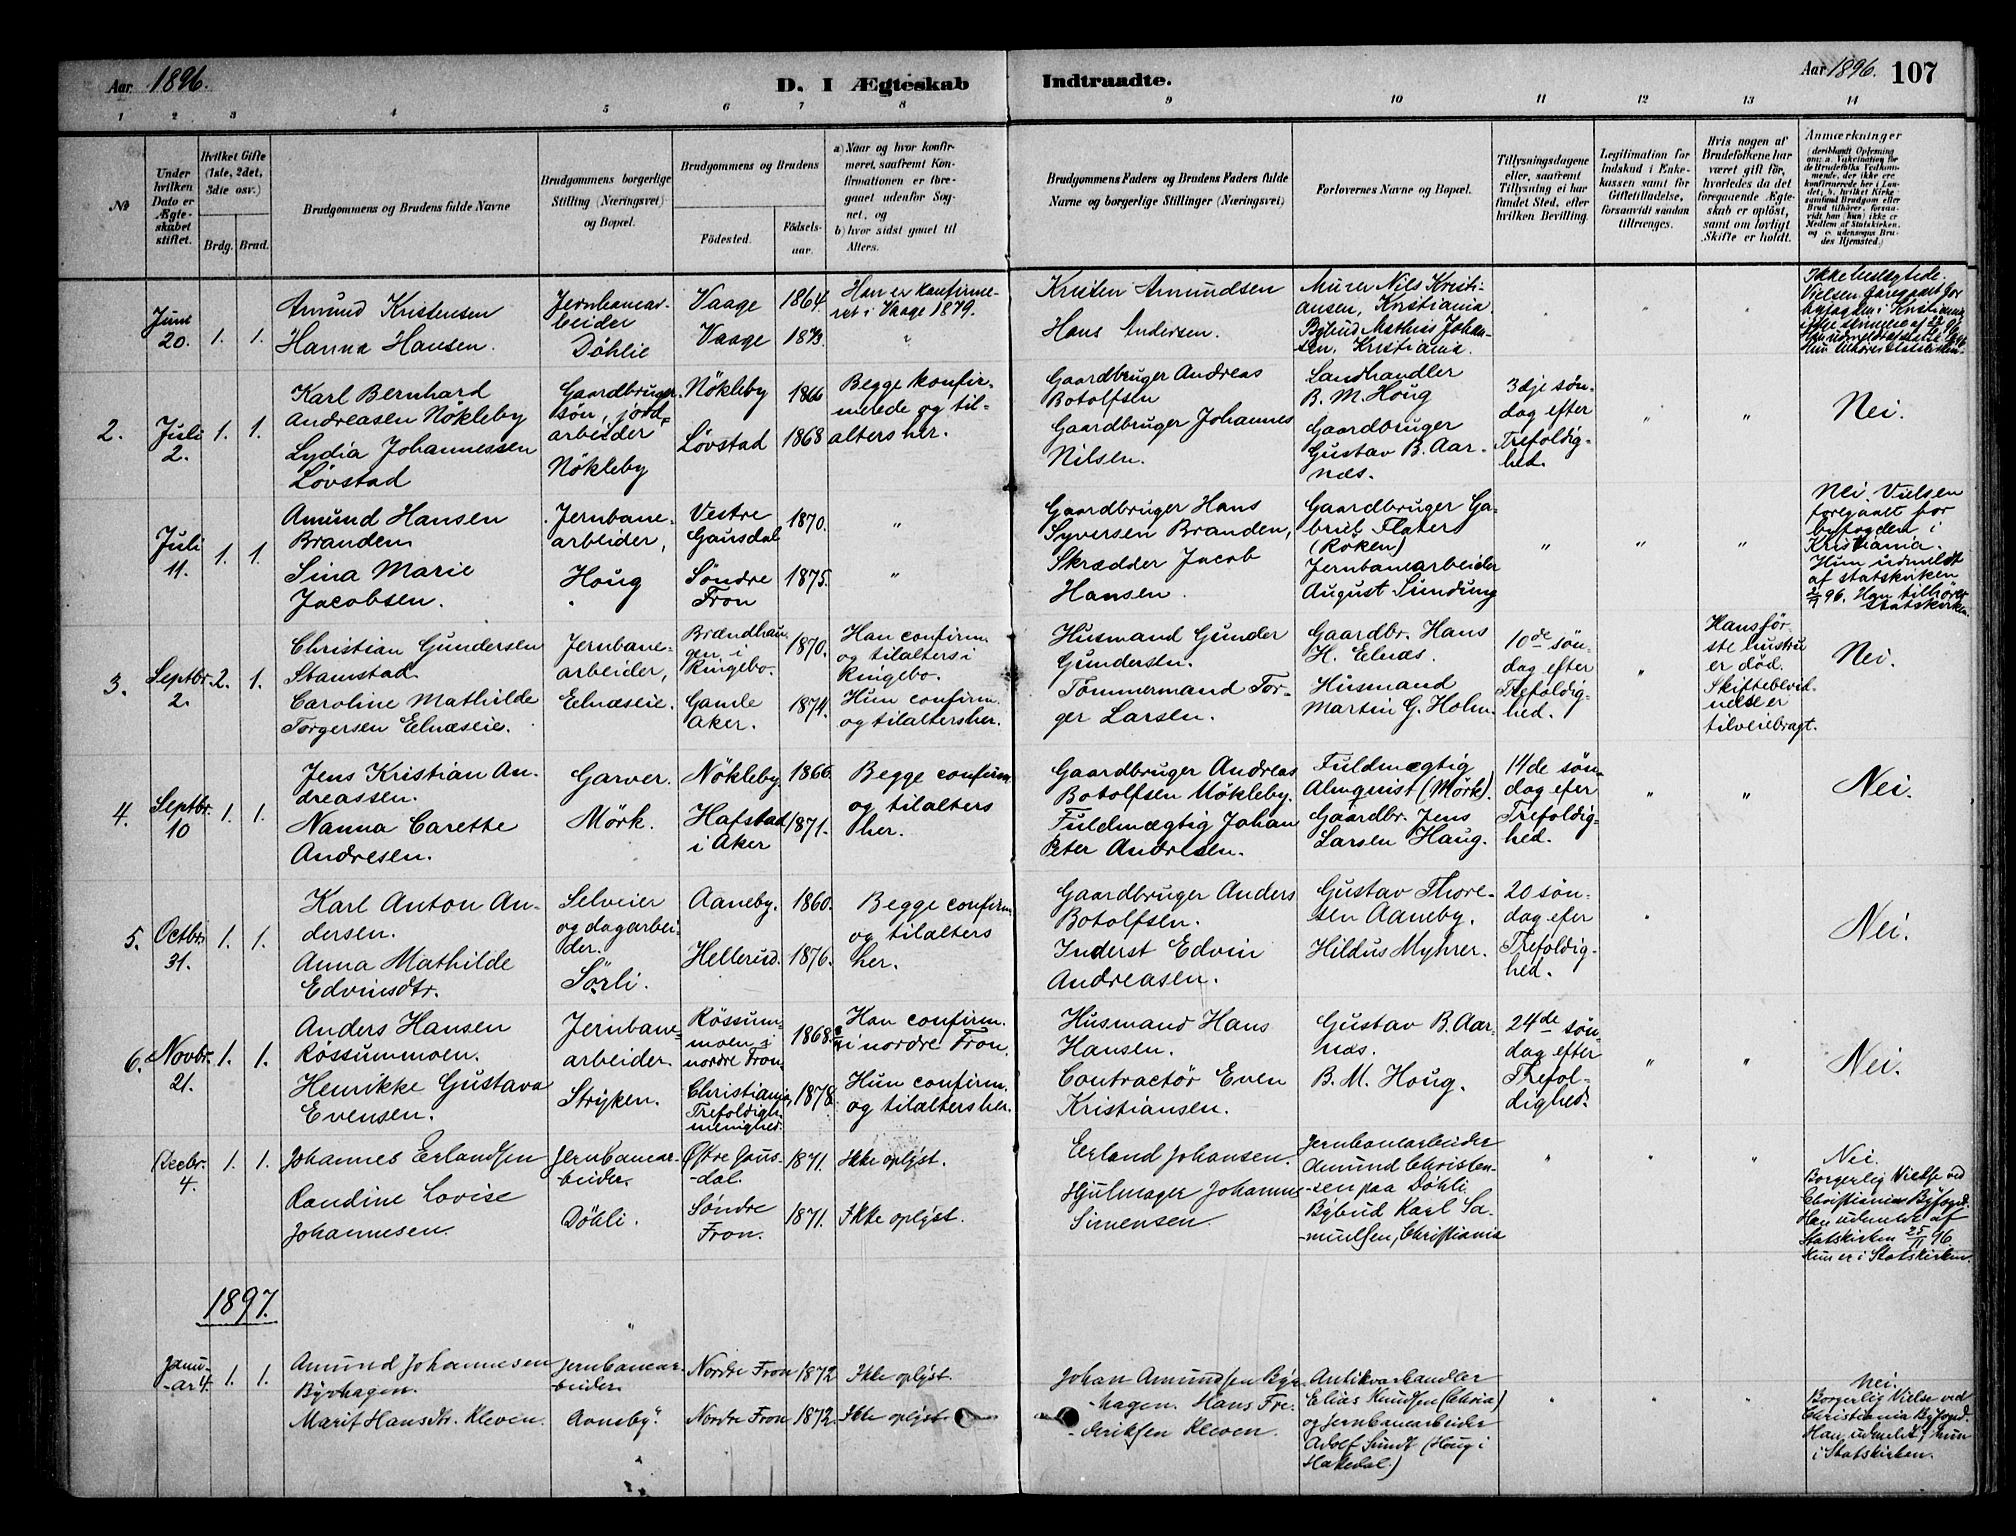 Aar 1896.
D. I Ægteskab Indtraadte.
Aar 1896. 107
1 2 3 4 5 6 7 8 9 10 11 12 13 14
No
Under hvilken Dato er Ægteskabet stiftet.
Hvilket Gifte (1ste, 2det, 3die osv.)
Brdg. Brud.
Brudgommens og Brudens fulde Navne
Brudgommens borgerlige Stilling (Næringsvei) og Bopæl.
Brudgommens og Brudens
Födested.
Födselsaar.
a) Naar og hvor konfirmeret, saafremt Konfirmationen er foregaaet udenfor Sognet, og
b) hvor sidst gaaet til Alters.
Brudgommens Faders og Brudens Faders fulde Navne og borgerlige Stillinger (Næringsvei)
Forlovernes Navne og Bopæl.
Tillysningsdagene eller, saafremt Tillysning ei har fundet Sted, efter hvilken Bevilling.
Legitimation for Indskud i Enkekassen samt for Giftetilladelse, forsaavidt saadan tiltrænges.
Hvis nogen af Brudefolkene har været gift før, hvorledes da det foregaaende Ægteskab er oplöst, samt om lovligt Skifte er holdt.
Anmærkninger
Juni 20. 1. 1.
Amund Kristensen
Hanna Hansen.
Jernbanearbeider
Döhlie
Vaage 1864.
Vaage 1873.
Han er konfirmeret i Vaage 1879.
Kristen Amundsen
Hans Andersen.
Murer Nils Kristiansen, Kristiania
Bybud Mathias Johansen, Kristiania.
Ikke beslægtede.
Vielsen foregaaet for
byfogden i Kristiania
2. Juli 2. 1. 1.
Karl Bernhard
Andreasen Nökleby
Lydia Johannessen
Lövstad
Gaardbruger-
sön, jord-
arbeider
Nökleby
Nökleby 1866
Lövstad 1868
Begge konfir-
merede og til-
alters her.
Gaardbruger Andreas
Botolfsen
Gaardbruger Johannes
Nilsen.
Landhandler
B. M. Houg
Gaardbruger
Gustav B. Aar-
næs.
3dje sön-
dag efter
Trefoldig-
hed.
" "
Nei.
Juli 11. 1. 1.
Amund Hansen
Branden
Sina Marie
Jacobsen.
Jernbane-
arbeider,
Houg
Vestre
Gausdal 1870.
Söndre
Fron 1875.
" "
Gaardbruger Hans
Syversen Branden,
Skrædder Jacob
Hansen.
Gaardbruger Ga-
briel Flater
(Röken)
Jernbanearbeider
August Sundung
" " "
Nei. Vielsen
foregaaet for
byfogden i
Kristiania.
Hun udmeldt
af statskirken
96. Han tilhörer
Statskirken.
3. Septbr. 2. 2. 1.
Christian Gundersen
Stamstad.
Caroline Mathilde
Torgersen Elnæseie.
Jernbane-
arbeider,
Elnæseie.
Brændhau-
gen i
Ringebo. 1870.
Gamle
Aker. 1874.
Han confirm.
og tilalters i
Ringebo.
Hun confirm.
og tilalters her.
Husmand Gunder
Gundersen.
Tömmermand Tor-
ger Larsen.
Gaardbr. Hans
H. Elnæs.
Husmand
Martin G. Holm.
10de sön-
dag efter
Trefoldig-
hed.
"
Hans för-
ste hustru
er död.
Skiftebevid-
nelse er
tilveiebragt.
Nei.
4. Septbr. 10 1. 1.
Jens Kristian An-
dreassen.
Nanna Carette
Andresen.
Garver.
Mörk.
Nökleby. 1866.
Hafstad
i Aker 1871.
Begge confirm.
og tilalters
her.
Gaardbruger Andreas
Botolfsen Nökleby.
Fuldmægtig Johan
Peter Andresen.
Fuldmægtig
Almquist (Mörk).
Gaardbr. Jens
Larsen Haug.
14de sön-
dag efer
Trefoldig-
hed.
" "
Nei.
5. Octbr. 31. 1. 1.
Karl Anton An-
dersen.
Anna Mathilde
Edvinsdtr.
Selveier
og dagarbei-
der.
Sörli.
Aaneby. 1860.
Hellerud. 1876.
Begge confirm.
og tilalters
her.
Gaardbruger Anders
Botolfsen.
Inderst Edvin
Andreasen.
Gustav Thore-
sen Aaneby.
Hildus Myhrer.
20 sön-
dag efer
Trefoldig-
hed.
"
Nei.
6. Novbr. 21. 1. 1.
Anders Hansen
Róssummoen.
Henrikke Gustava
Evensen.
Jernbane-
arbeider.
Stryken.
Róssum-
moen i
nordre Fron. 1868.
Christiania,
Trefoldigh.
menighed. 1878.
Han confirm.
i nordre Fron.
Hun confirm.
og tilalters her.
Husmand Hans
Hansen.
Contractör Even
Kristiansen.
Gustav B. Aar-
næs.
B. M. Houg.
24de sön-
dag efter
Trefol-
dighed.
" "
Nei.
Decbr. 4. 1. 1.
Johannes Erlandsen
Randine Lovise
Johannesen.
Jernbanear-
beider.
Döhli.
Östre Gaus-
-dal. 1871.
Söndre
Fron. 1871.
Ikke oplyst.
Ikke oplyst.
Erland Johansen.
Hjulmager Johannes
Simensen.
Jernbanearbeider
Amund Christen-
-sen paa Döhli.
Bybud Karl Sa-
-muelsen, Christiania
" " "
Nei.
Borgerlig Vielse ved
Christiania Byfogd.
Han udmeldt af
Statskirken 25/11 96.
Hun er i Statskirken.
1897.
Janu-
-ar 4. 1. 1.
Amund Johannesen
Byvhagen.
Marit Hansdtr. Kleven.
Jernbanear-
-beider
Aonsby.
Nordre Fron 1872
Nordre Fron 1872.
Ikke oplyst.
Ikke oplyst.
Johan Amundsen Byv-
-hagen. Hans Fre-
-deriksen Kleven.
Antikvarhandler
Elias Knudsen (Chria)
og Jernbanearbeider
Adolf Sundt (Houg i
Hakedal.)
Nei.
Borgerlig Vielse ved
Christiania Byfogd.
Han udmeldt, hun
i Statskirken.